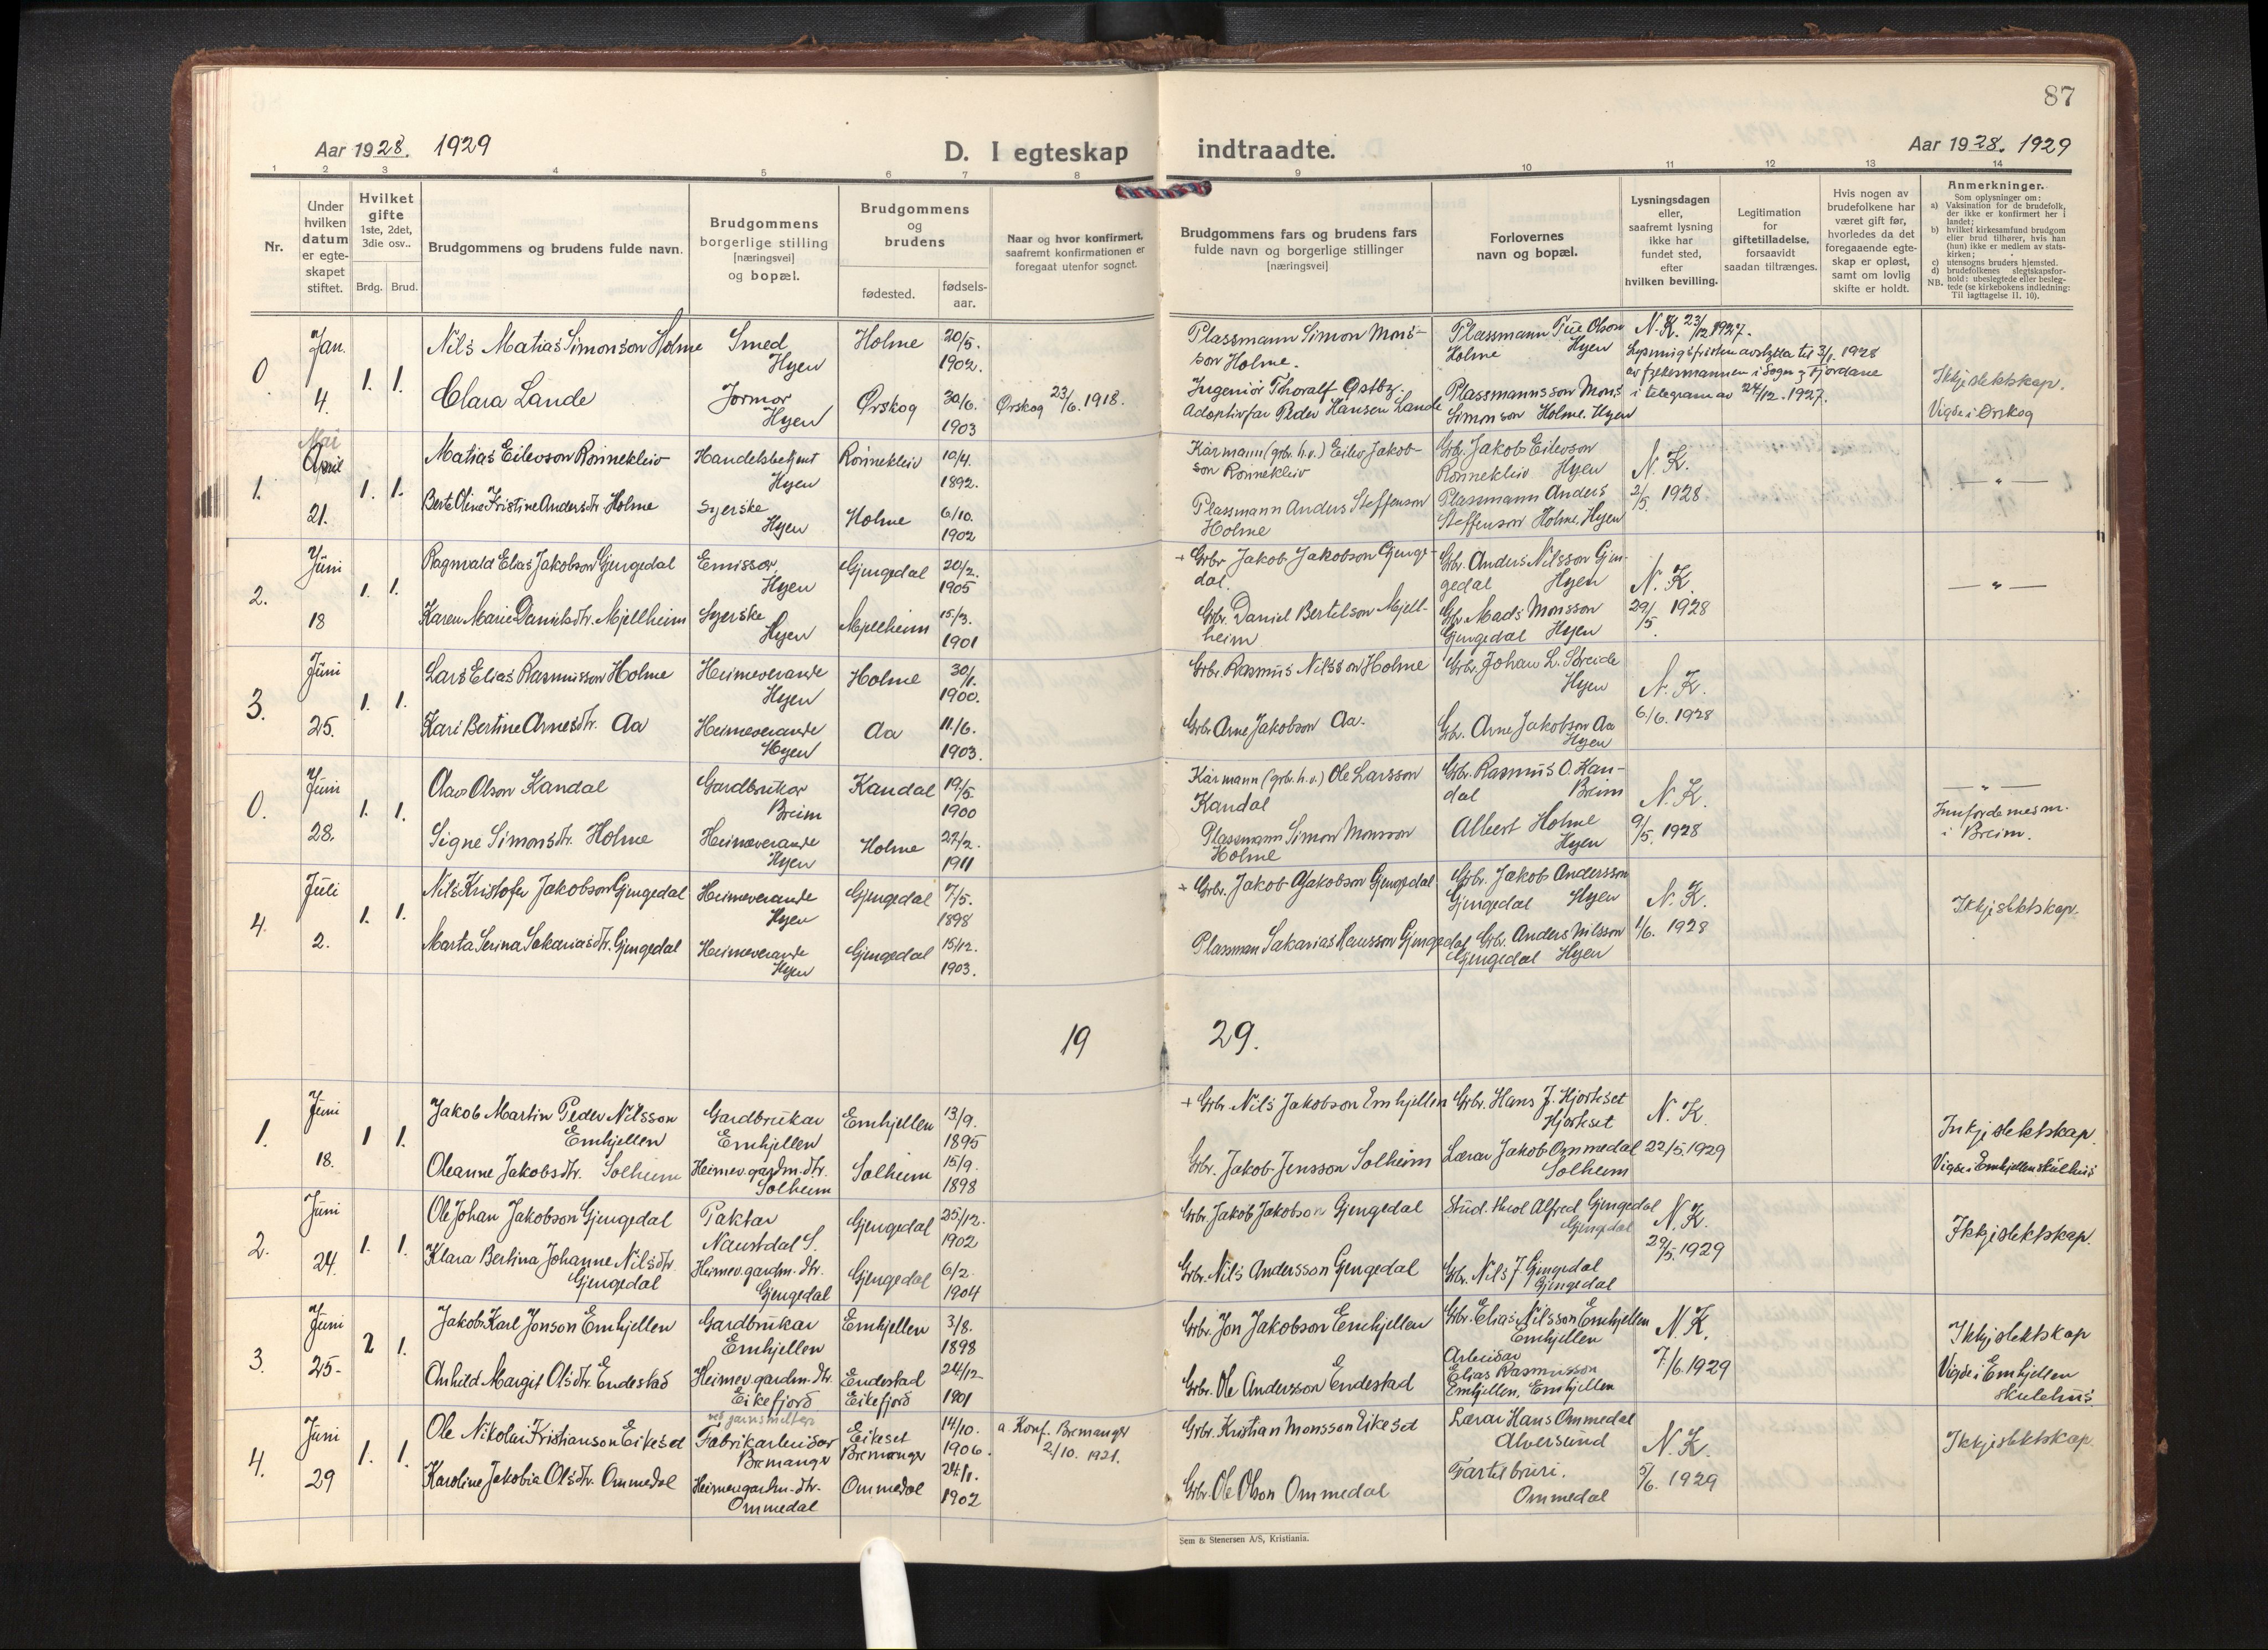 87
Aar 1928. 1929
D. I egteskap indtraadte.
Aar 1928. 1929
1 2 3 4 5 6 7 8 9 10 11 12 13 14
Nr.
Under hvilken datum er egte-skapet stiftet.
Hvilket gifte 1ste, 2det, 3die osv..
Brdg. Brud.
Brudgommens og brudens fulde navn.
Brudgommens borgerlige stilling [næringsvei] og bopæl.
Brudgommens og brudens
fødested.
fødsels-aar.
Naar og hvor konfirmert, saafremt konfirmationen er foregaat utenfor sognet.
Brudgommens fars og brudens fars fulde navn og borgerlige stillinger [næringsvei]
Forlovernes navn og bopæl.
Lysningsdagen eller, saafremt lysning ikke har fundet sted, efter hvilken bevilling.
Legitimation for giftetilladelse, forsaavidt saadan tiltrænges.
Hvis nogen av brudefolkene har været gift før, hvorledes da det foregaaende egte-skap er opløst, samt om lovlig skifte er holdt.
Anmerkninger.
Som oplysninger om:
a) Vaksination for de brudefolk, der ikke er konfirmert her i landet;
b) hvilket kirkesamfund brudgom eller brud tilhører, hvis han (hun) ikke er medlem av stats-kirken;
c) utensogns bruders hjemsted.
d) brudefolkenes slegtskapsfor-hold: ubeslegtede eller besleg-tede (se kirkebokens indledning:
NB. Til Iagttagelse II. 10).
0. Jan. 4. 1. 1.
Nils Matias Simonson Holme
Smed Hyen
Holme 20/5. 1902.
Plassmann Simon Mons-son Holme.
Plassmann Tue Olson Holme Hyen
N. K. 23/12 1927.
Lysningsfristen avstytta til 3/1. 1928 av fylkesmannen i Sogn og Fjordane i telegram av 24/12. 1927.
Clara Lande
Jormor Hyen
Ørskog 30/6. 1903
Ørskog 23/6. 1918.
Ingeniør Thoralf Østby.
Adoptivfar Peder Hansen Lande
Plassmannsson Mons Simonson Holme. Hyen
Ikkje slektskap.
Vigde i Ørskog
1. Mai April 21. 1. 1.
Matias Eilevson Rönnekleiv
Handelsbetjent Hyen
Rönnekleiv 10/4. 1892.
Kårmann (grb. h.v.) Eilev Jakob-son Rönnekleiv
Grb. Jakob Eilevson Rönnekleiv Hyen
N. K. 2/5. 1928
— " —
Berte Oline Kristine Andersdtr. Holme
Syerske Hyen
Holme 6/10. 1902
Plassmann Anders Steffenson Holme
Plassmann Anders Steffenson Holme. Hyen
2. Juni 18 1. 1.
Ragnvald Elias Jakobson Gjengedal
Emissær, Hyen
Gjengedal 20/2. 1905
+ Grbr Jakob Jakobson Gjenge-dal
Grb. Anders Nilsson Gjen-gedal Hyen
N. K. 29/5. 1928
— " —
Karen Marie Danielsdtr. Mjellheim
Syerske Hyen
Mjellheim 15/3. 1901
Grbr. Daniel Bertelson Mjell-heim
Gbr. Mads Monsson Gjengedal Hyen
3. Juni 25. 1. 1.
Lars Elias Rasmusson Holme
Heimeverande Hyen
Holme 30/1. 1900.
Grbr. Rasmus Nilsson Holme
Grbr. Johan L. Søreide Hyen
N. K. 6/6. 1928
Kari Bertine Arnesdtr. Aa
Heimeverande Hyen
Aa 11/6. 1903.
Grbr. Arne Jakobson Aa.
Grb. Arne Jakobson Aa Hyen
0. Juni 28. 1. 1.
Olav Olson Kandal
Gardbrukar Breim
Kandal 19/5 1900
Kårmann (grbr. h.v.) Ole Larsson Kandal
Grbr. Rasmus O. Kan-dal Breim
N. K. 9/5. 1928
— " —
Innförde mesm. i Breim.
Signe Simonsdtr. Holme
Heimeverande Hyen
Holme 22/2. 1911
Plassmann Simon Monsson Holme
Albert Holme Hyen
4. Juli 2. 1. 1.
Nils Kristofer Jakobson Gjengedal
Heimeverande Hyen
Gjengedal 7/5. 1898
+ Grbr. Jakob Jakobson Gjengedal
Grbr. Jakob Andersson Gjengedal Hyen
N. K. 1/6. 1928
Ikkje slektskap.
Marta Serina Sakariasdtr. Gjengedal
Heimeverande Hyen
Gjengedal 15/12. 1903.
Plassman Sakarias Hansson Gjengedal
Grb. Anders Nilsson Gjengedal Hyen
19 29.
1. Juni 18. 1 1.
Jakob Martin Peder Nilsson Emhjellen
Gardbrukar Emhjellen
Emhjellen 13/9. 1895
+ Grbr. Nils Jakobson Emhjellen
Grbr. Hans J. Hjorteset Hjorteset
N. K. 22/5. 1929
Inkje slektskap.
Vigde i Emhjellen skulhus
Oleanne Jakobsdtr. Solheim
Heimev. gardm. dtr. Solheim
Solheim 15/9. 1898
Grbr. Jakob Jensson Solheim
Lærar Jakob Ommedal Solheim
2. Juni 24. 1. 1.
Ole Johan Jakobson Gjengedal
Paktar Naustdal S.
Gjengedal 25/12. 1902
Grbr. Jakob Jakobson Gjengedal
Stud. theol Alfred Gjengedal Gjengedal
N. K. 29/5. 1929
Ikkje slektskap.
Klara Bertina Johanne Nilsdtr. Gjengedal
Heimev. gardm. dtr. Gjengedal
Gjengedal 6/2. 1904
Grbr. Nils Andersson Gjengedal
Grbr. Nils J. Gjengedal Gjengedal
3. Juni 25- 2 1.
Jakob Karl Jonson Emhjellen
Gardbrukar Emhjellen
Emhjellen 3/8. 1898
Grbr. Jon Jakobson Emhjellen
Grbr. Elias Nilsson Emhjellen Emhjellen
N. K. 7/6. 1929
Ikkje slektskap
Vigde i Emhjellen skulehus
Anhild Margit Olsdtr. Endestad
Heimev. gardm. dtr. Eikefjord
Endestad Eikefjord 24/12 1901
Grbr. Ole Andersson Endestad
Arbeidar Elias Rasmusson Emhjellen, Emhjellen
4. Juni 29 1. 1.
Ole Nikolai Kristianson Eikeset
ved jarnsmeltev.
Fabrikarbeidar Bremanger
Eikeset Bremanger 14/10. 1906.
a. Konf. Bremanger 2/10. 1921.
Grbr. Kristian Monsson Eikeset
Lærar Hans Ommedal Alversund
N. K. 5/6. 1929
Ikkje slektskap.
Karoline Jakobia Olsdtr. Ommedal
Heimev. gardm. dtr. Ommedal
Ommedal 24/1. 1902
Grbr. Ole Olson Ommedal
Ommedal
Sem & Stenersen A/S, Kristiania.